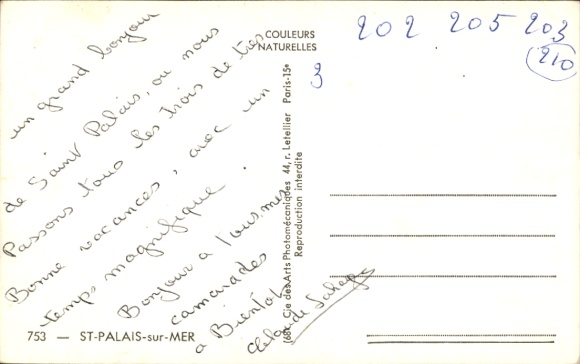 un grand bonjour
de Saint Palais, ou nous
Passons tous les trois de tres
Bonne vacances, avec un
temps magnifique.
Bonjour a tous mes
camarades
a Bientot
COULEURS
NATURELLES
202 205 203
210
3
Cie des Arts Photomécaniques 44, r. Letellier Paris-15e
Reproduction interdite
753 — ST-PALAIS-sur-MER